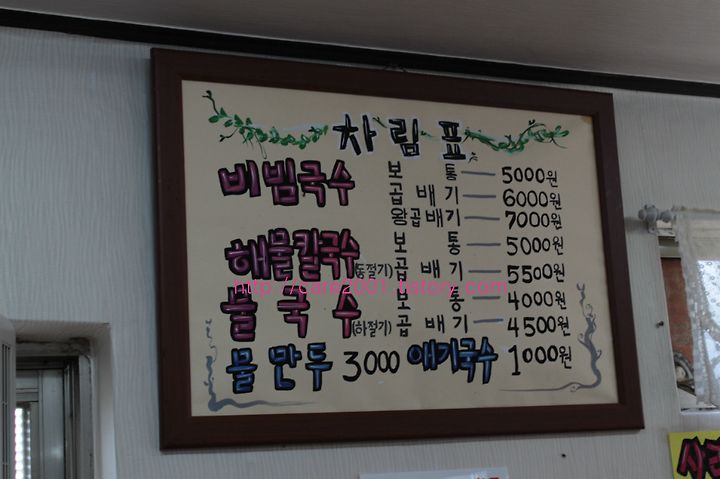 차림표
비빔국수 보통 5000원
곱배기 6000원
왕곱배기 7000원
해물칼국수 보통 5000원
(동절기) 곱배기 5500원
물국수 보통 4000원
(하절기) 곱배기 4500원
물만두 3000 애기국수 1000원
http://care2001.tistory.com
사리